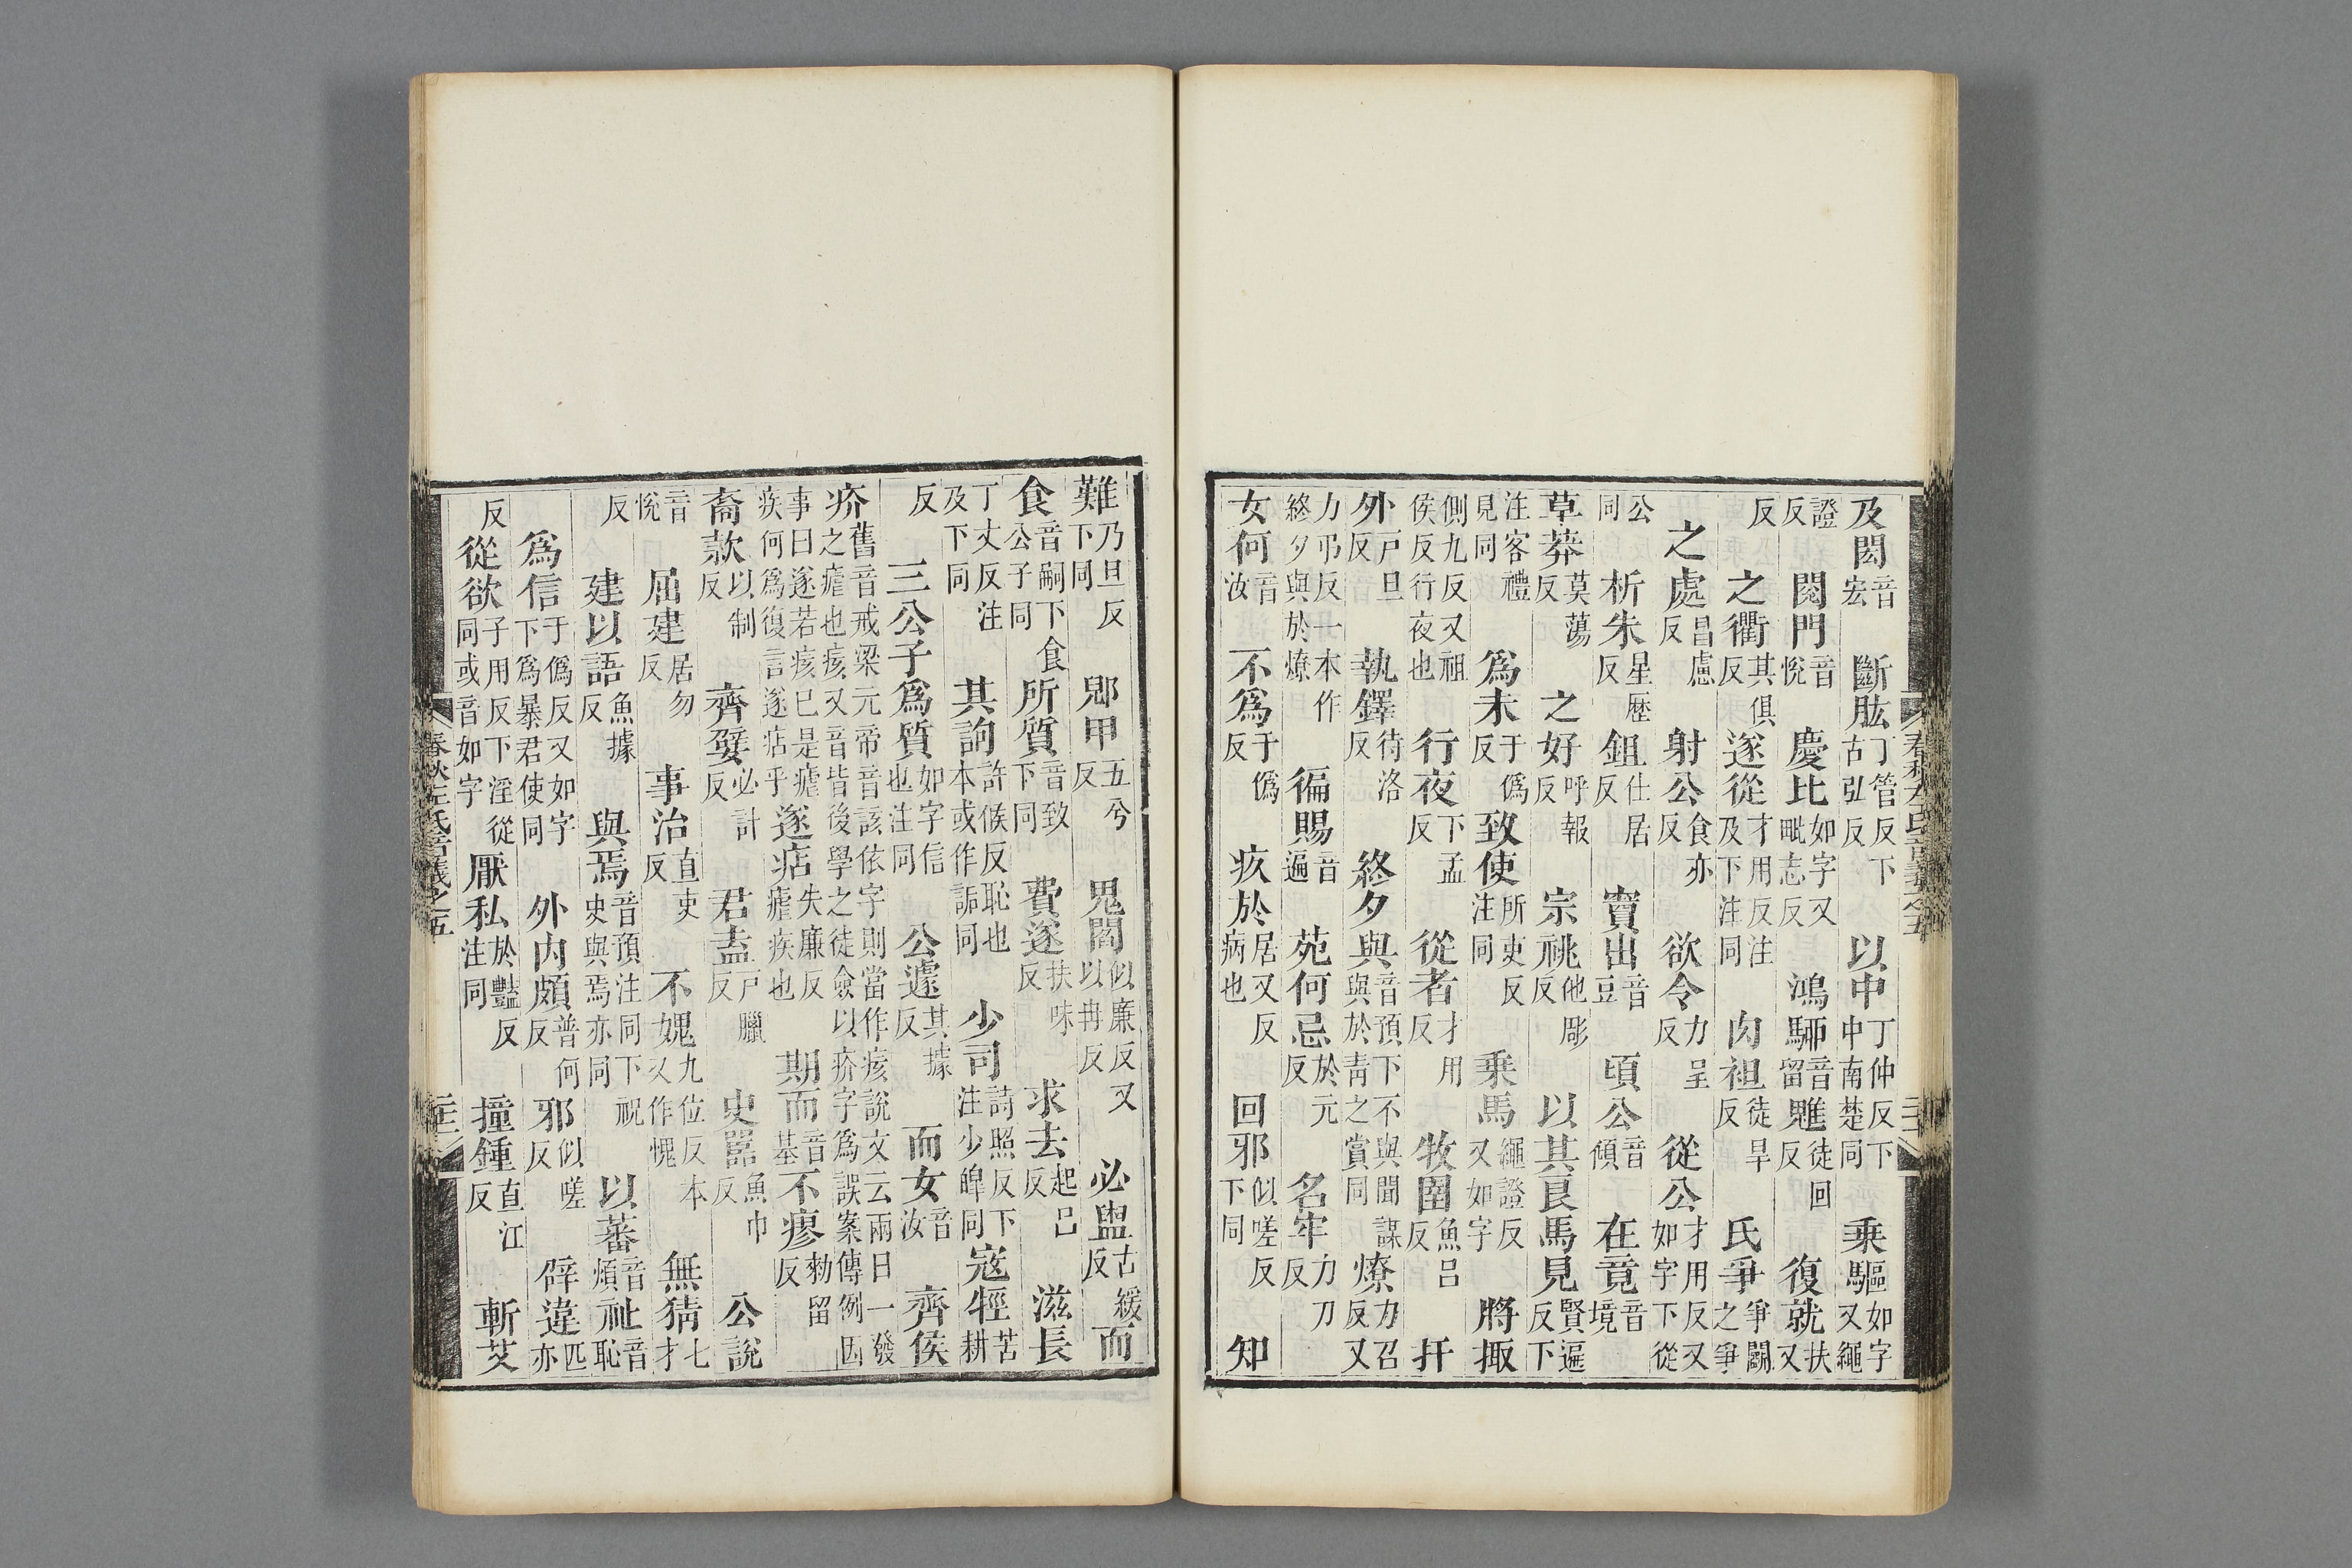 春秋左氏音義之五
及閎音宏 斷肱丁管反下古弘反 以中丁仲反下中南楚同 乗驅如字又繩
證反 閱門音悅 慶比如字又毗志反 鴻駵音留 魋徒回反 復就扶又
反 之衢其俱反 遂從才用反注及下注同 肉袒徒旱反 氏爭爭鬭之爭
之處昌慮反 射公食亦反 欲令力呈反 從公才用反又如字下從
公同 析朱星歷反 鉏仕居反 竇出音豆 頃公音傾 在竟音境
草莽莫蕩反 之好呼報反 宗祧他彫反 以其良馬見賢遍反下
注客禮見同 爲未于僞反 致使所吏反注同 乗馬繩證反又如字 將掫
側九反又祖侯反行夜也 行夜下孟反 從者才用反 牧圉魚呂反 扞
外戸旦反 執鐸待洛反 終夕與音預下不與聞謀與於靑之賞同 燎力召反又
力弔反一本作終夕與於燎 徧賜音遍 苑何忌於元反 名牢力刀反
女何音汝 不爲于僞反 疚於居又反病也 回邪似嗟反下同 知
難乃旦反下同 郳甲五兮反 鬼閻似廉反又以冉反 必盥古緩反 而
食音嗣下食公子同 所質音致下同 費遂扶味反 求去起呂反 滋長
丁丈反注及下同 其訽許候反恥也本或作詬同 少司詩照反下注少皥同 寇牼苦耕
反 三公子爲質如字信也注同 公遽其據反 而女音汝 齊侯
疥舊音戒梁元帝音該依字則當作痎說文云兩日一發之瘧也痎又音皆後學之徒僉以疥字爲誤案傳例因
事曰遂若痎已是瘧疾何爲復言遂痁乎 遂痁失廉反瘧疾也 期而音基 不瘳勑留反
裔款以制反 齊嬖必計反 君盍戸臘反 史嚚魚巾反 公說
音悅 屈建居勿反 事治直吏反 不媿九位反本又作愧 無猜七才
反 建以語魚據反 與焉音預注同下祝史與焉亦同 以蕃音煩 祉音恥
爲信于僞反又如字下爲暴君使同 外內頗普何反 邪似嗟反 辟違匹亦
反 從欲子用反下淫從同或音如字 厭私於豔反注同 撞鍾直江反 斬艾
春秋左氏音義之五